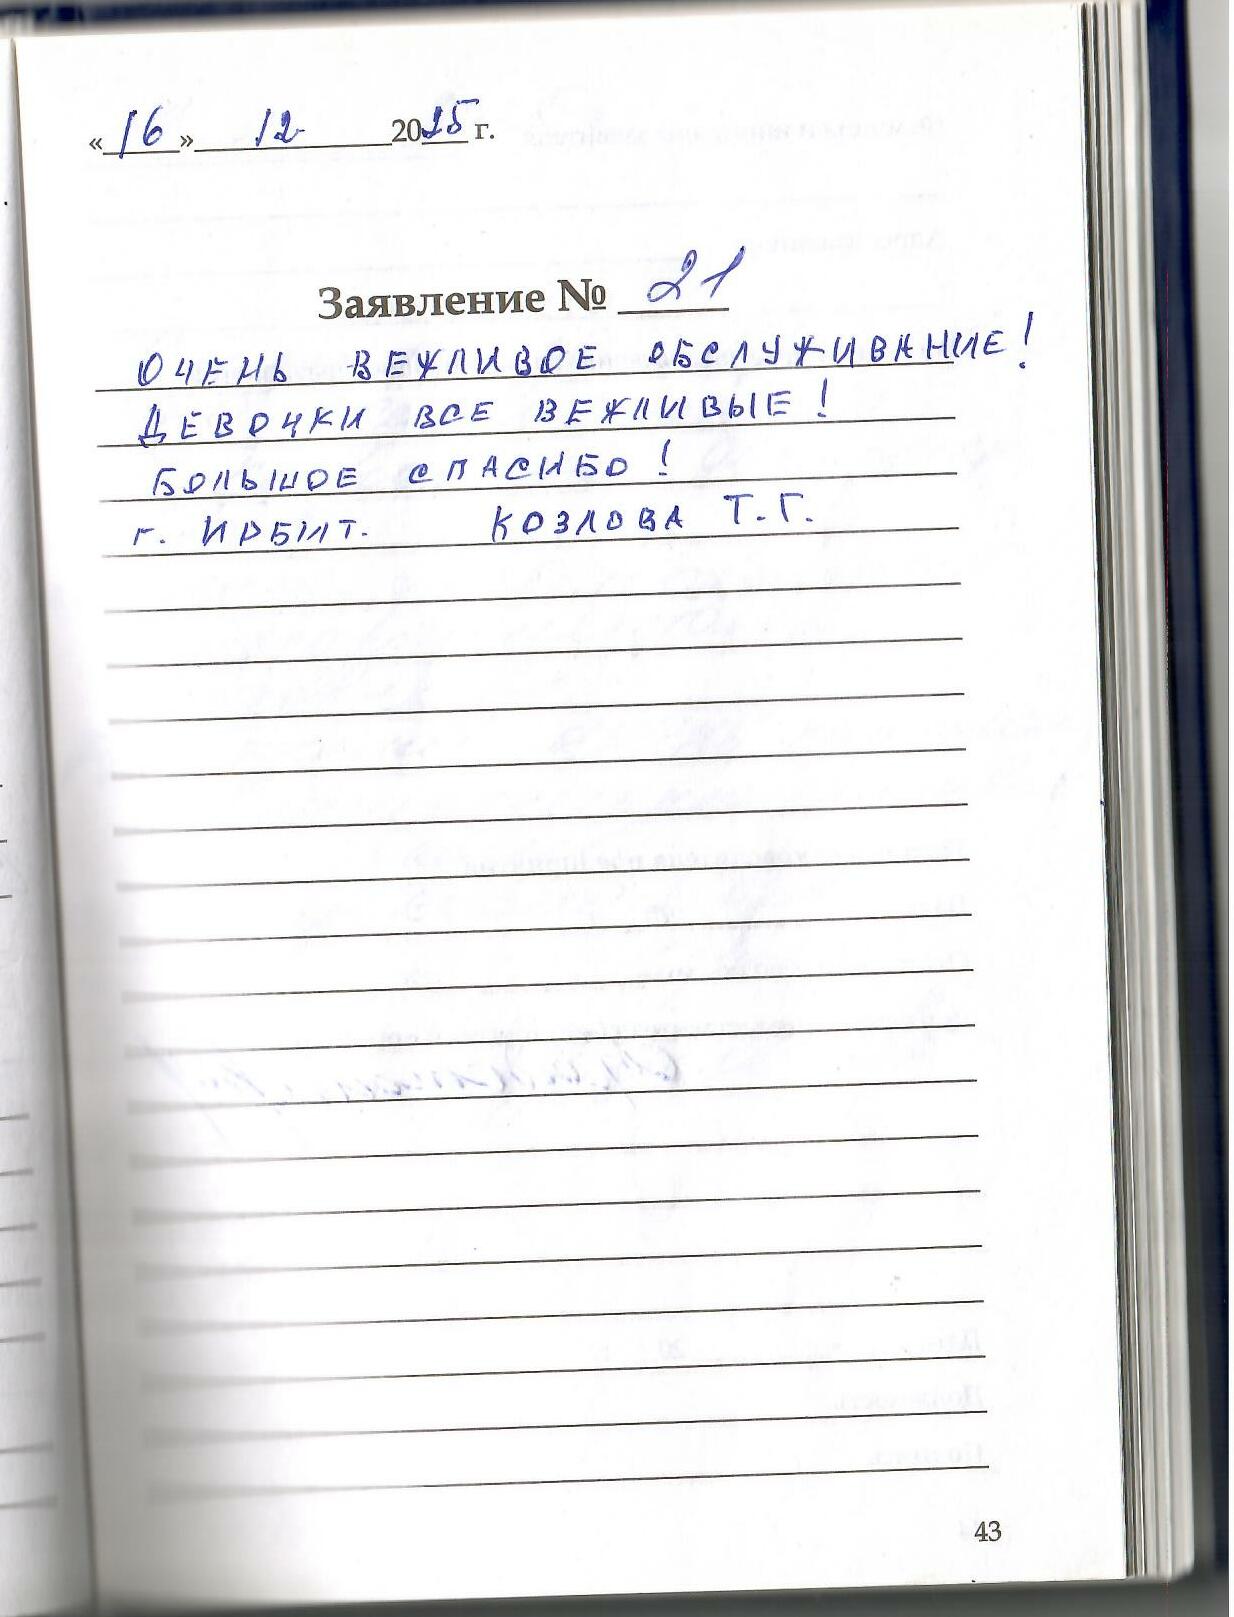 «16» 12 2025 г.
Заявление № 21
ОЧЕНЬ ВЕЖЛИВОЕ ОБСЛУЖИВАНИЕ!
ДЕВОЧКИ ВСЕ ВЕЖЛИВЫЕ!
БОЛЬШОЕ СПАСИБО!
г. ИРБИТ. КОЗЛОВА Т.Г.
43